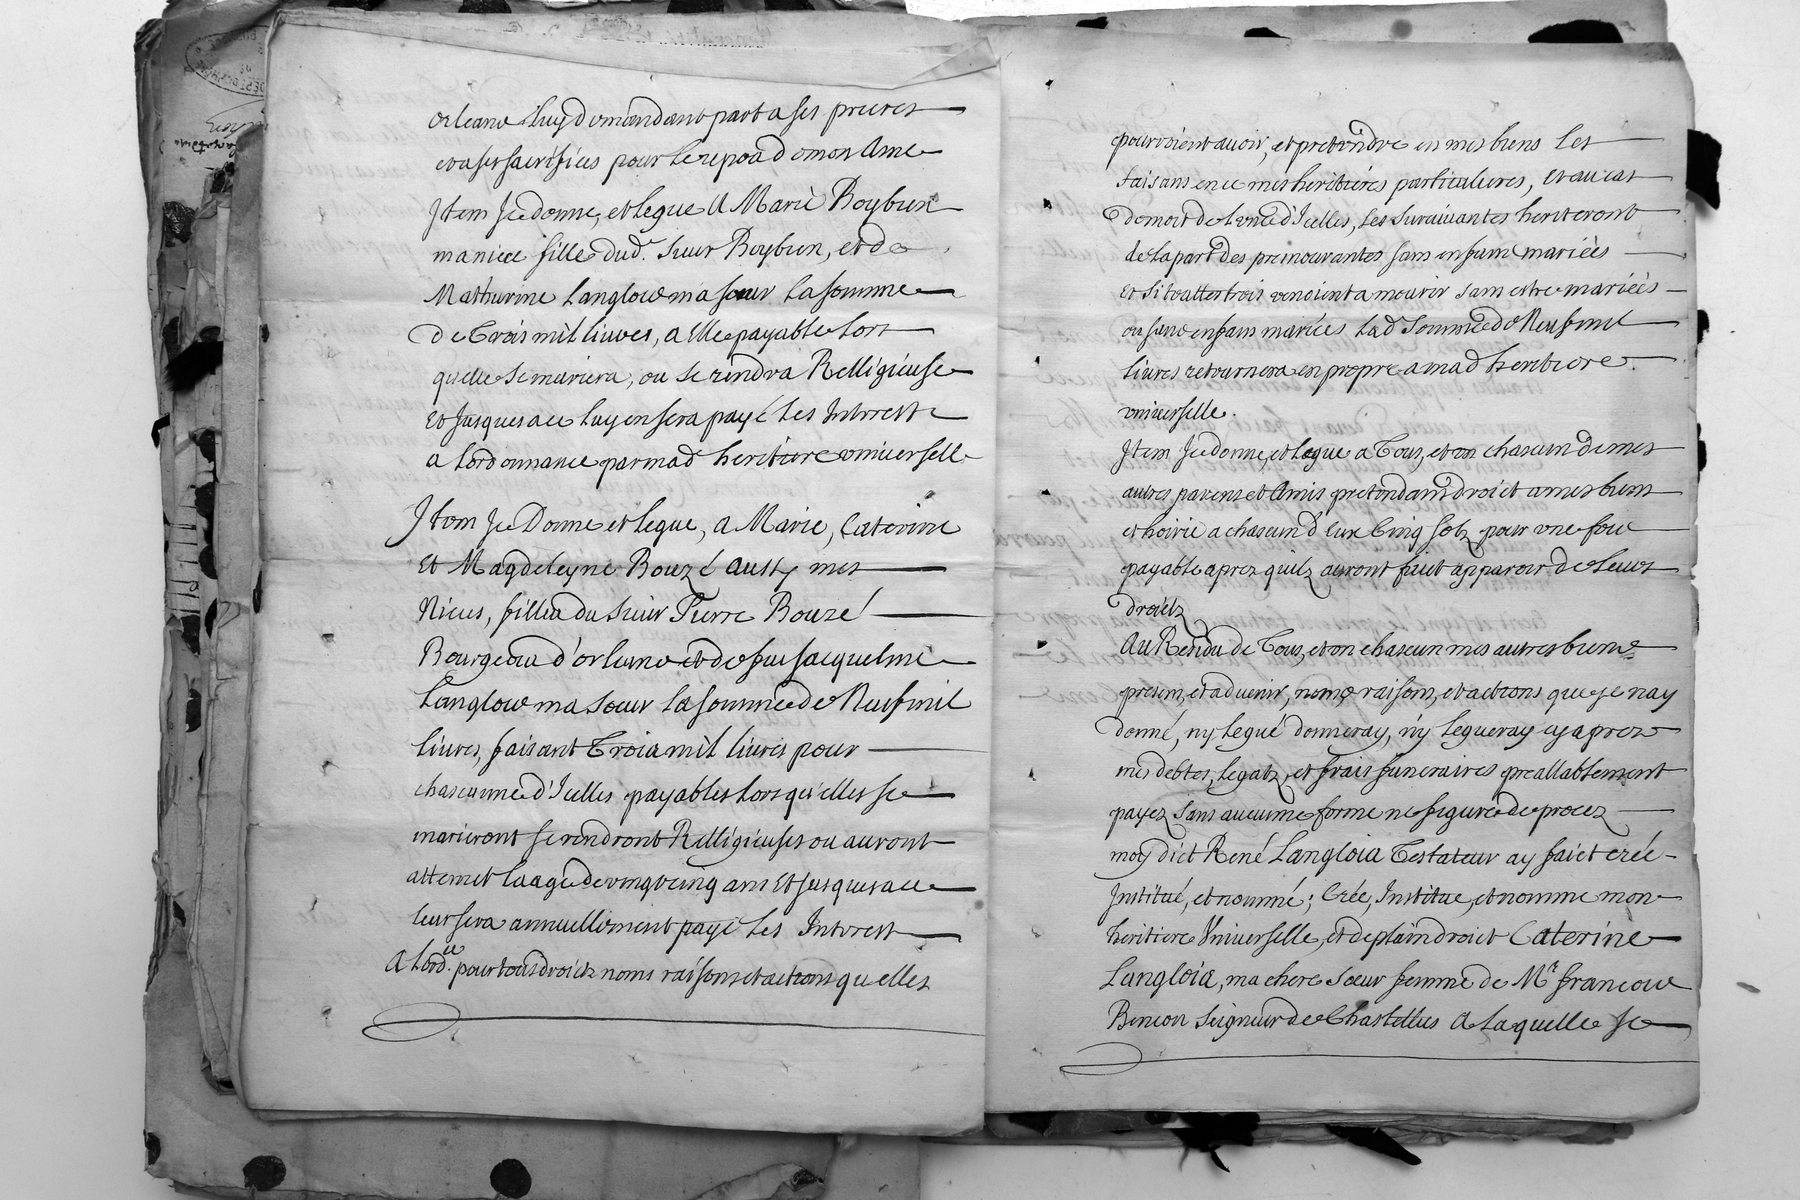 orleans luy demandant part a ses prieres
et a ses sacrifices pour le repos de mon Ame
Item Je donne, et legue A Marie Boybien
ma niece fille dud.^t Sieur Boybien, et de
Mathurine Langlois ma soeur La somme
de Trois mil livres, a Elle payable Lors
quelle Se mariera, ou se rendra Relligieuse
Et Jusques a ce luy en sera payé Les Interest
a Lordonnance par mad heritiere universelle
Item Je Donne et legue, a Marie, Caterine
Et Magdeleyne Bouzé aussy mes
Nieces, filles du Sieur Pierre Bouzé
Bourgeois d'orleans et de feue Jacquelme
Langlois ma soeur la somme de Neuf mil
livres, faisant Trois mil livres pour
chascunne d'Icelles payables Lors qu'elles se
marieront se rendront Relligieuses ou auront
atteinct laage de vingt cinq ans Et Jusques a ce
leur sera annuellement payé Les Interest
A Lord.^ce pour tous droictz noms raisons et actions quelles
pourroient avoir, et pretendre en mes biens Les
faisans en ce mes heritieres particulieres, Et au cas
de mort de l'une d'Icelles, Les Survivantes heriteront
de la part des premourantes sans enfans mariées
Et Si toutes trois venoient a mourir sans estre mariées
ou sans enfans mariées lad Somme de Neuf mil
livres retournera en propre a mad heritiere
universelle.
Item Je donne, et legue a Tous, et un chascun de mes
autres parens et Amis pretendans droict a mes biens
et hoirie a chascun d'Eux Cinq solz pour une fois
payable aprez quilz auront faict apparoir de Leurs
droictz
Au Residu de Tous, et un chascun mes autres biens
presens, et advenir, noms, raisons, et actions que je nay
donné, ny legué donneray, ny legueray cy aprez
mes debtes, Legatz, et frais funeraires preallablement
payez sans aucune forme ne figure de procez
moy dict René Langlois Testateur ay faict créé
Institué, et nommé; Crée, Institue, et nomme mon
heritiere Universelle, et de plain droict Caterine
Langlois, ma chere soeur femme de M^r francois
Bencon Seigneur de Chastellus A Laquelle Je